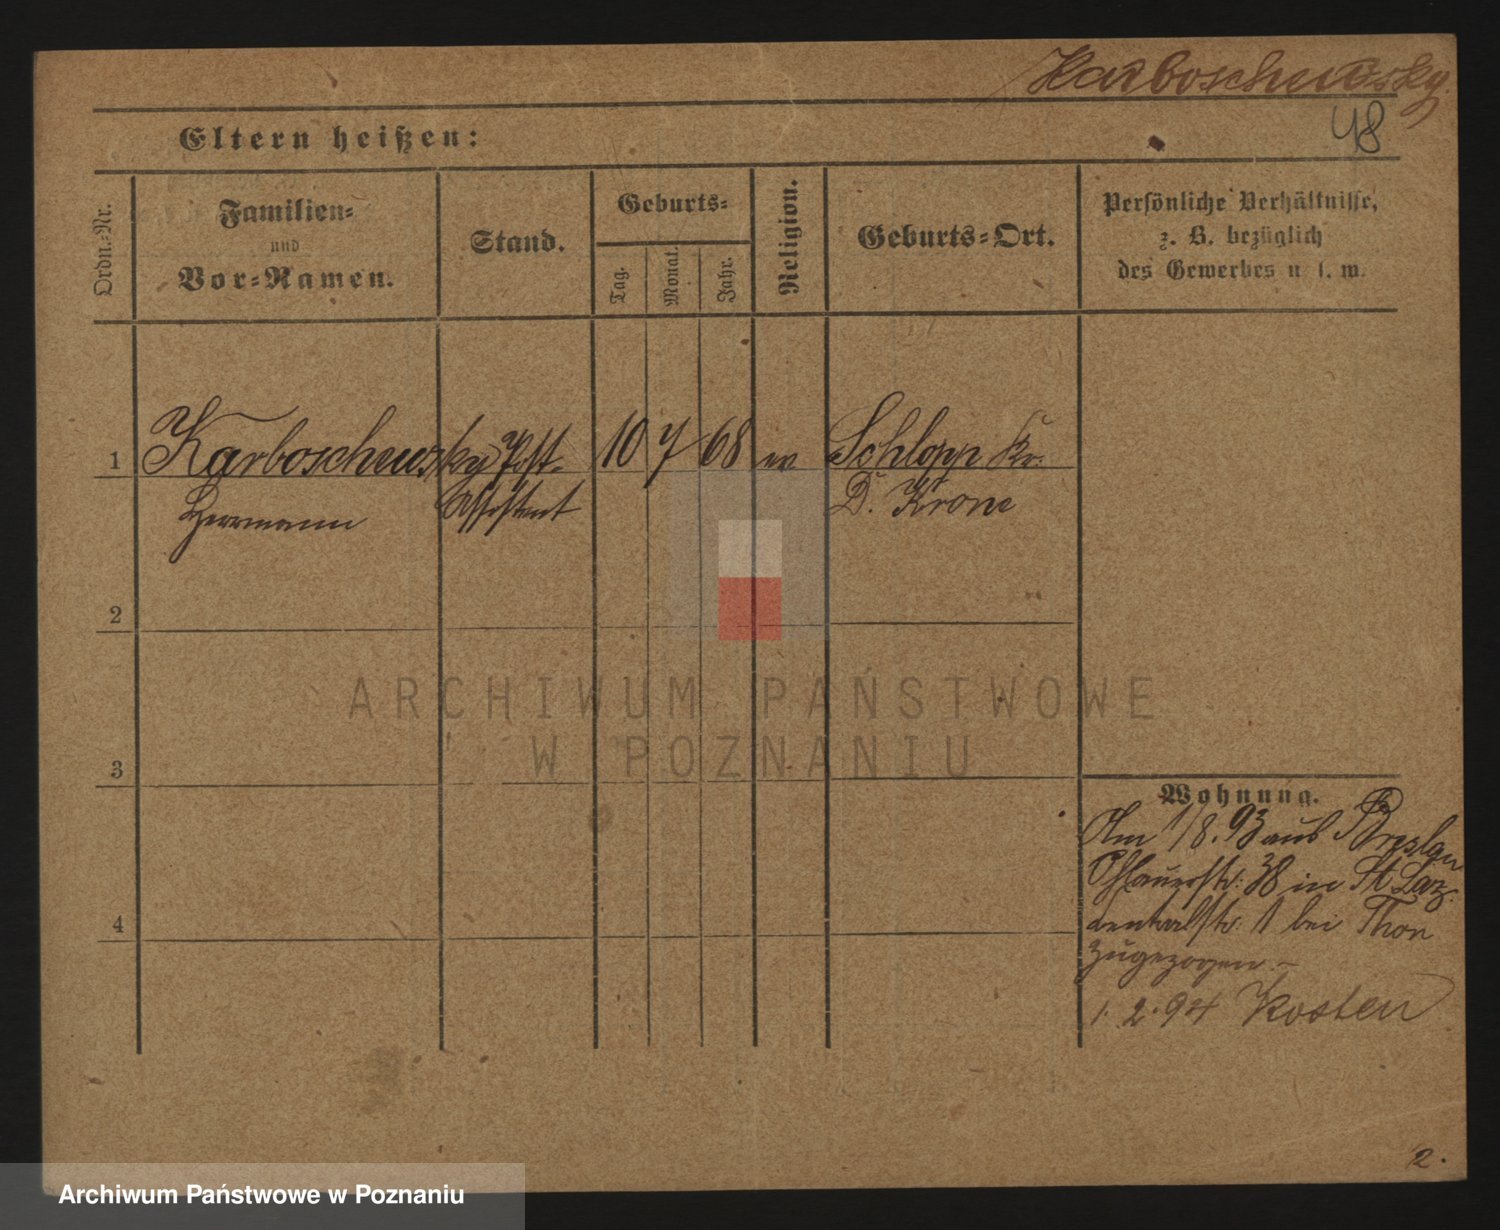 Karboschewsky.
48
Eltern heißen:
Ordn.=Nr.
Familien=
und
Vor=Namen.
Stand.
Geburts=
Tag.
Monat.
Jahr.
Religion.
Geburts=Ort.
Persönliche Verhältnisse,
z. B. bezüglich
des Gewerbes u. s. w.
1 Karboschewsky Post- 10 7 68 ev Schlopp Kr.
Herrmann Assistent D. Krone
2
3
4
Wohnung.
Am 1/8.93 aus Breslau
Ohlauerstr: 38 in St. Laz.
Centralstr: 1 bei Thon
zugezogen. –
1. 2. 94 Kosten
2.
ARCHIWUM PAŃSTWOWE
W POZNANIU
Archiwum Państwowe w Poznaniu